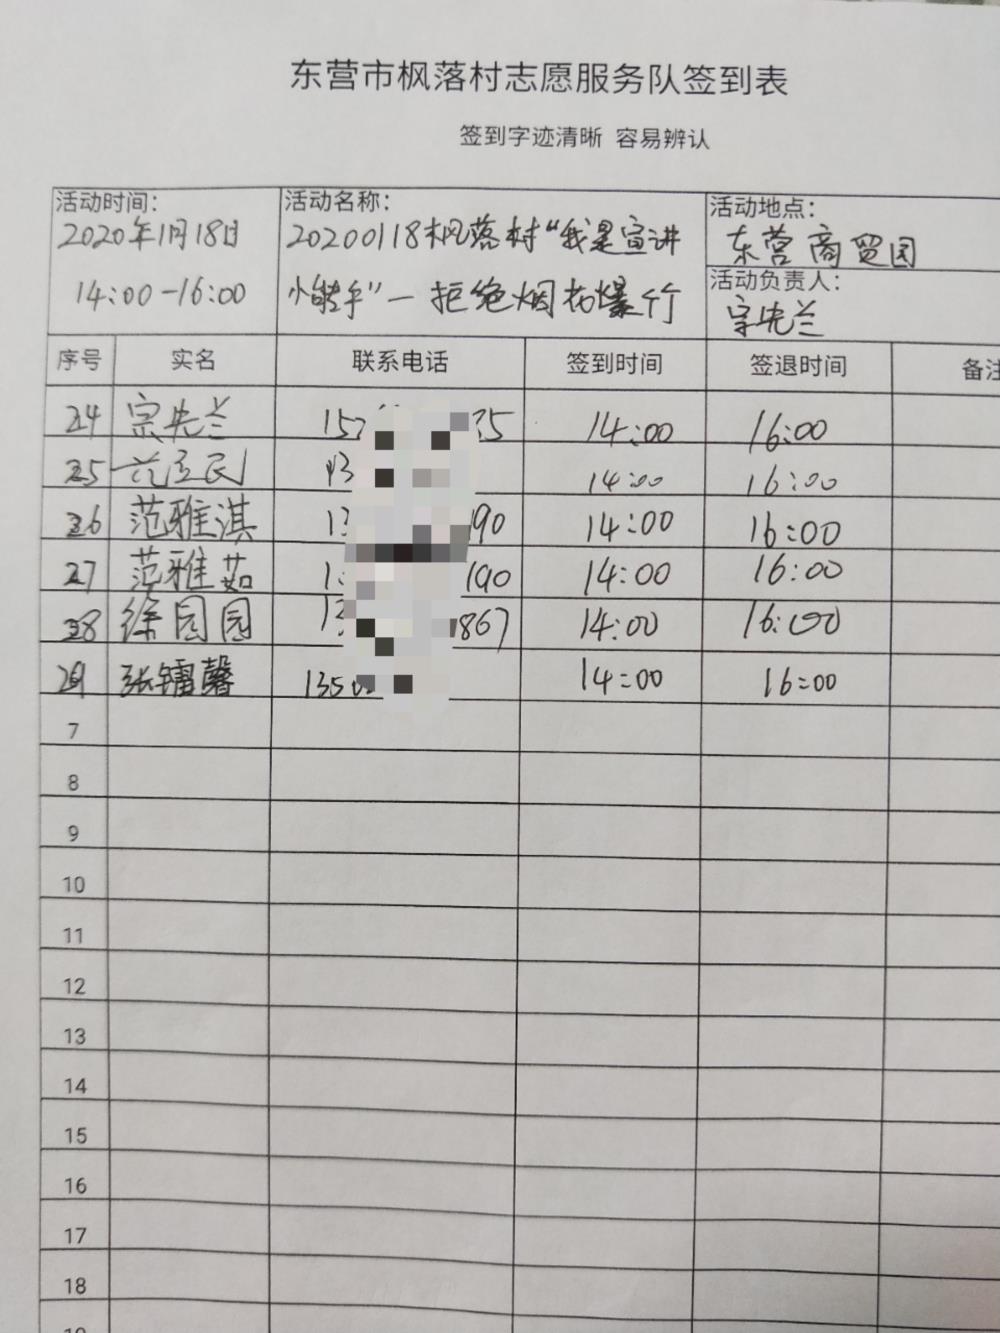 东营市枫落村志愿服务队签到表
签到字迹清晰 容易辨认
活动时间:
2020年1月18日
14:00-16:00
活动名称:
20200118枫落村“我是宣讲
小能手”—拒绝烟花爆竹
活动地点:
东营商贸园
活动负责人:
宗先兰
序号 实名 联系电话 签到时间 签退时间 备注
24 宗先兰 15 35 14:00 16:00
25 范立民 13 14:00 16:00
26 范雅淇 13 190 14:00 16:00
27 范雅茹 1 190 14:00 16:00
28 徐园园 13 867 14:00 16:00
29 张镭馨 135 14:00 16:00
7
8
9
10
11
12
13
14
15
16
17
18